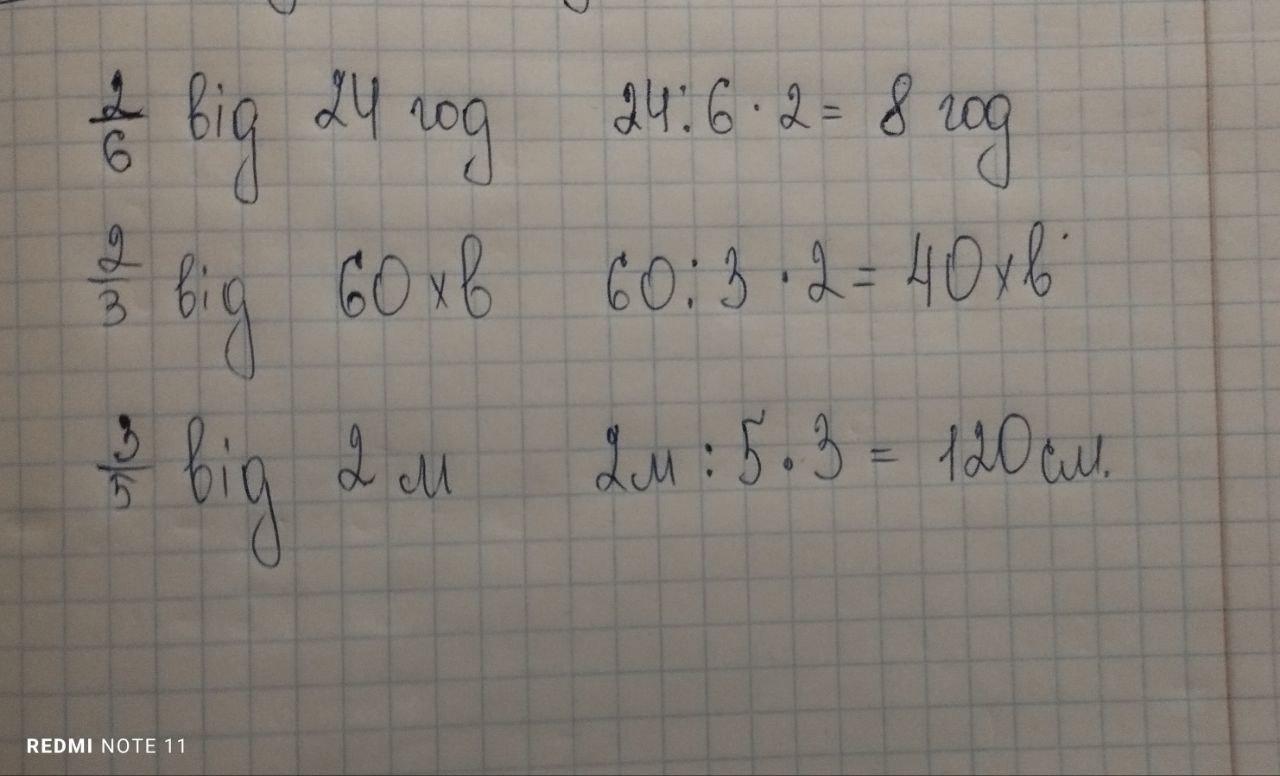 2/6 від 24 год 24 : 6 · 2 = 8 год
2/3 від 60 хв 60 : 3 · 2 = 40 хв
3/5 від 2 м 2м : 5 · 3 = 120 см.
REDMI NOTE 11